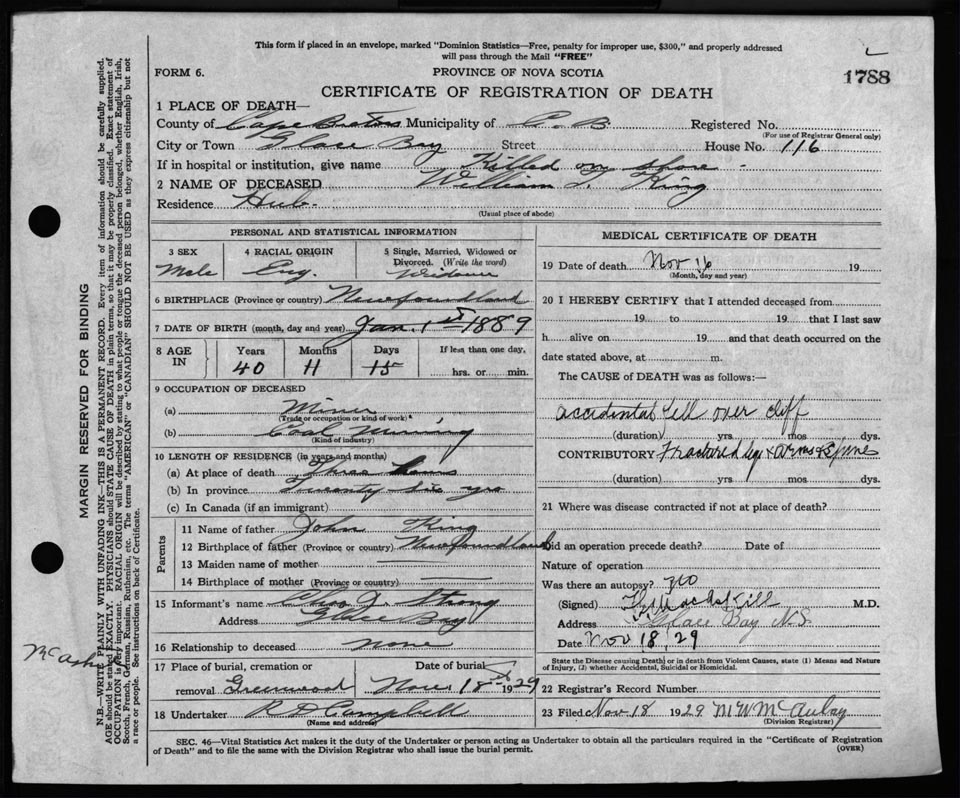 This form if placed in an envelope, marked "Dominion Statistics—Free, penalty for improper use, $300," and properly addressed
will pass through the Mail "FREE"
FORM 6.
PROVINCE OF NOVA SCOTIA
1788
CERTIFICATE OF REGISTRATION OF DEATH
1 PLACE OF DEATH—
County of Cape Breton Municipality of C. B Registered No.
(For use of Registrar General only)
City or Town Glace Bay Street House No. 116
If in hospital or institution, give name Killed on shore -
2 NAME OF DECEASED William T. King
Residence Hub.
(Usual place of abode)
PERSONAL AND STATISTICAL INFORMATION
3 SEX
Male
4 RACIAL ORIGIN
Eng.
5 Single, Married, Widowed or
Divorced. (Write the word)
Widower
6 BIRTHPLACE (Province or country) Newfoundland
7 DATE OF BIRTH (month, day and year) Jan. 1st 1889
8 AGE IN
Years Months Days If less than one day,
40 11 15 hrs. or min.
9 OCCUPATION OF DECEASED
(a) Miner
(Trade or occupation or kind of work)
(b) Coal Mining
(Kind of industry)
10 LENGTH OF RESIDENCE (in years and months)
(a) At place of death Three
(b) In province Twenty Six yrs
(c) In Canada (if an immigrant)
Parents
11 Name of father John King
12 Birthplace of father (Province or country) Newfoundland
13 Maiden name of mother
14 Birthplace of mother (Province or country)
15 Informant's name J. Strong
Address Glace Bay
16 Relationship to deceased none
17 Place of burial, cremation or
removal Greenwood
Date of burial
Nov 18st 1929
18 Undertaker R D Campbell
(Name and address)
MEDICAL CERTIFICATE OF DEATH
19 Date of death Nov 16 19
(Month, day and year)
20 I HEREBY CERTIFY that I attended deceased from
19 to 19 that I last saw
h alive on 19 and that death occurred on the
date stated above, at m.
The CAUSE of DEATH was as follows:—
accidental fell over cliff
(duration) yrs mos dys.
CONTRIBUTORY Fractured leg & arms & Spine
(duration) yrs mos dys.
21 Where was disease contracted if not at place of death?
Did an operation precede death? Date of
Nature of operation
Was there an autopsy? no
(Signed) M.D.
Address Glace Bay N.S.
Date Nov 18, 29
State the Disease causing Death; or in death from Violent Causes, state (1) Means and Nature
of Injury, (2) whether Accidental, Suicidal or Homicidal.
22 Registrar's Record Number
23 Filed Nov 18 1929 M W McAulay
(Division Registrar)
SEC. 46—Vital Statistics Act makes it the duty of the Undertaker or person acting as Undertaker to obtain all the particulars required in the "Certificate of Registration
of Death" and to file the same with the Division Registrar who shall issue the burial permit.
(OVER)
MARGIN RESERVED FOR BINDING
N.B.—WRITE PLAINLY WITH UNFADING INK—THIS IS A PERMANENT RECORD. Every item of information should be carefully supplied.
AGE should be stated EXACTLY. PHYSICIANS should STATE CAUSE OF DEATH in plain terms, so that it may be properly classified. Exact statement of
OCCUPATION is very important. RACIAL ORIGIN will be described by stating to what people or tongue the deceased person belonged, whether English, Irish,
Scotch, French, German, Russian, Ruthenian, etc. The terms "AMERICAN" or "CANADIAN" SHOULD NOT BE USED as they express citizenship but not
a race or people. See instructions on back of Certificate.